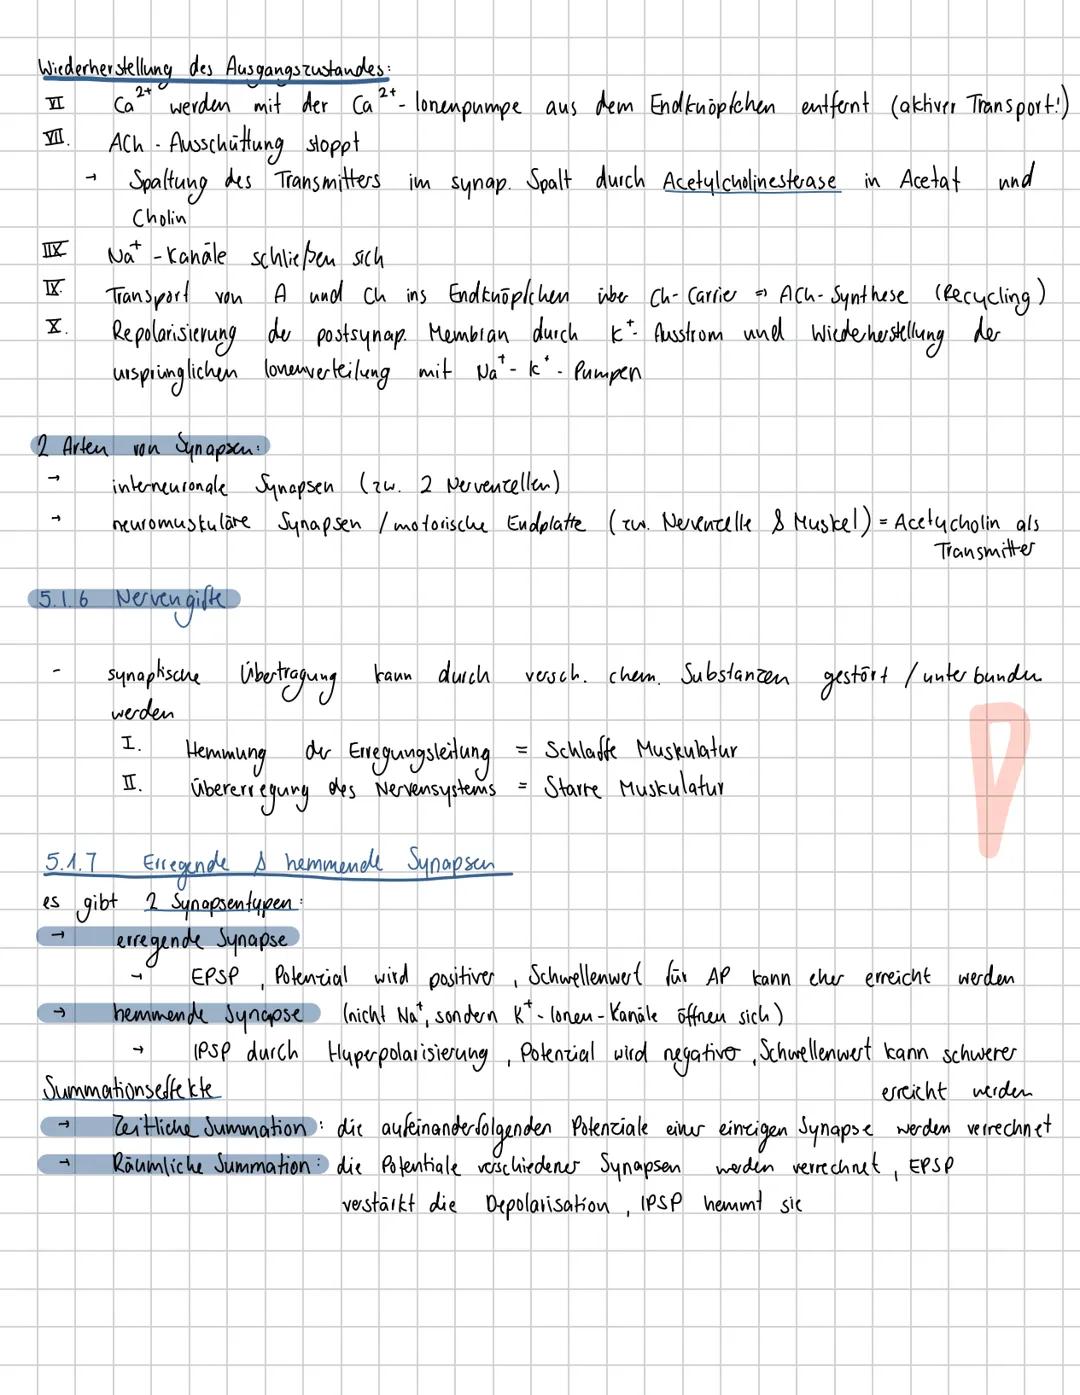 Wiederherstellung des Ausgangszustandes:
VI Ca²⁺ werden mit der Ca²⁺-Ionenpumpe aus dem Endknöpfchen entfernt (aktiver Transport!)
VII. ACh-Ausschüttung stoppt
→ Spaltung des Transmitters im synap. Spalt durch Acetylcholinesterase in Acetat und
Cholin
IIX Na⁺-Kanäle schließen sich
IX. Transport von A und Ch ins Endknöpfchen über Ch-Carrier ⇒ ACh-Synthese (Recycling)
X. Repolarisierung der postsynap. Membran durch K⁺-Ausstrom und Wiederherstellung der
ursprünglichen Ionenverteilung mit Na⁺-K⁺-Pumpen
2 Arten von Synapsen:
→ interneuronale Synapsen (zw. 2 Nervenzellen)
→ neuromuskuläre Synapsen / motorische Endplatte (zw. Nervenzelle & Muskel) = Acetycholin als
Transmitter
5.1.6 Nervengifte
- synaptische Übertragung kann durch versch. chem. Substanzen gestört / unterbunden
werden
I. Hemmung der Erregungsleitung = Schlaffe Muskulatur
II. Übererregung des Nervensystems = Starre Muskulatur
5.1.7 Erregende & hemmende Synapsen
es gibt 2 Synapsentypen:
→ erregende Synapse
→ EPSP, Potenzial wird positiver, Schwellenwert für AP kann eher erreicht werden
→ hemmende Synapse (nicht Na⁺, sondern K⁺-Ionen-Kanäle öffnen sich)
→ IPSP durch Hyperpolarisierung, Potenzial wird negativer, Schwellenwert kann schwerer
erreicht werden
Summationseffekte
→ Zeitliche Summation: die aufeinanderfolgenden Potenziale einer einzigen Synapse werden verrechnet
→ Räumliche Summation: die Potentiale verschiedener Synapsen werden verrechnet, EPSP
verstärkt die Depolarisation, IPSP hemmt sie